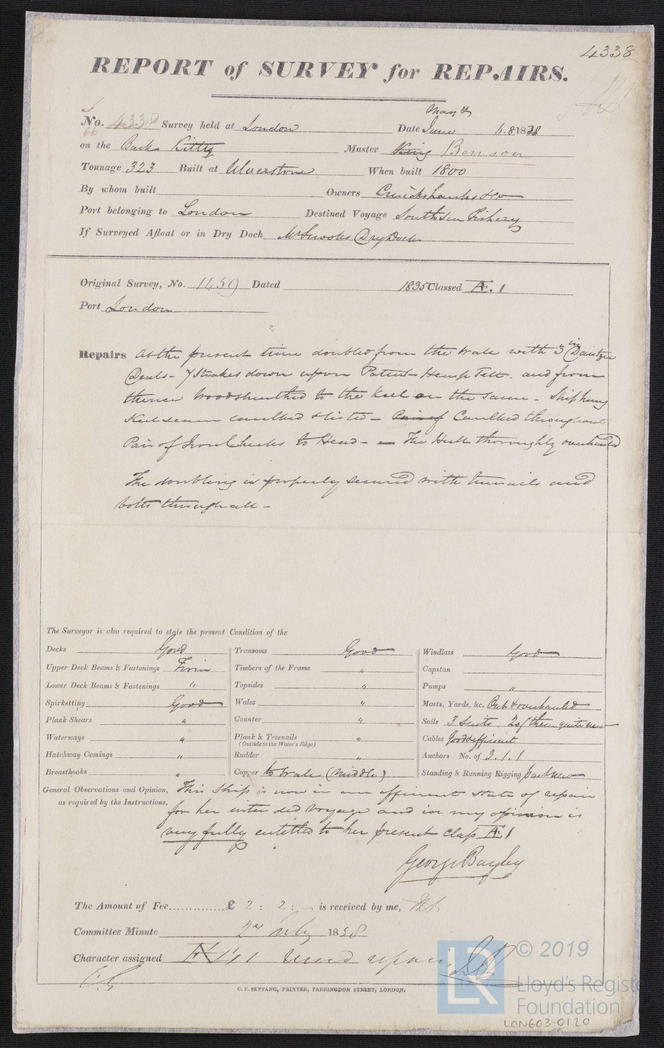 4338
REPORT of SURVEY for REPAIRS.
May &
No. 4338 Survey held at London Date June 4.8 1838
66
on the Bark Kitty Master King Benson
Tonnage 323 Built at Ulverstone When built 1800
By whom built Owners Cruickshanks & Co
Port belonging to London Destined Voyage South Sea Fishery
If Surveyed Afloat or in Dry Dock Dry Dock
Original Survey, No. 1459 Dated 1835 Classed Æ.1
Port London
Repairs At the present time doubled from the Wale with 3 in Dantzic
Deals - 7 Strakes down upon Patent Hemp Felt. and from
thence Woodsheathed to the Keel on the same - Ship hung
Keel seam caulked & listed - Pair of Caulked throughout
Pair of Iron Cheeks to Head - The Hull thoroughly overhauled
The doubling is properly secured with treenails and
bolts through all -
The Surveyor is also required to state the present Condition of the
Decks Good Transoms Good Windlass Good
Upper Deck Beams & Fastenings Firm Timbers of the Frame " Capstan
Lower Deck Beams & Fastenings " Topsides " Pumps "
Spirketting Good Wales " Masts, Yards, &c. Out & overhauled
Plank Shears " Counter " Sails 3 Suits 2 of them quite new
Waterways " Plank & Treenails " Cables Good & efficient
(Outside to the Water's Edge)
Hatchway Comings " Rudder " Anchors No. of 3.1.1
Breasthooks " Copper to Wale (Middle) Standing & Running Rigging part new
General Observations and Opinion, This Ship is now in an efficient state of repair
as required by the Instructions, for her intended Voyage and in my opinion is
very fully entitled to her present class Æ1
George Bayley
The Amount of Fee £ 2 : 2 : - is received by me,
Committee Minute 2nd July 1838
Character assigned Æ 1
C. F. SEYFANG, PRINTER, FARRINGDON STREET, LONDON.
LR
© 2019
Lloyd's Register
Foundation
LON603-0120